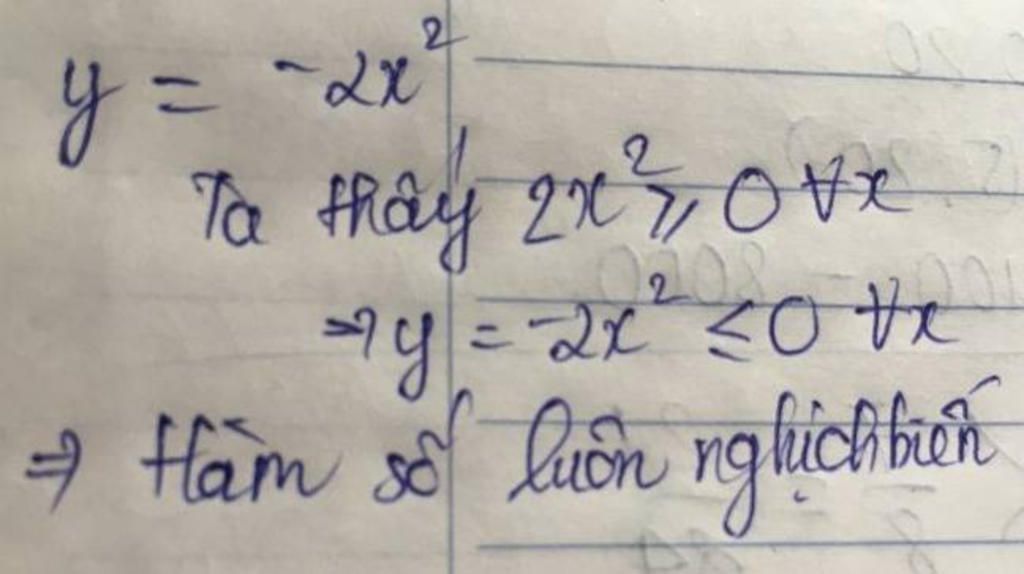 y = -2x²
Ta thấy 2x² ≥ 0 ∀x
⇒ y = -2x² ≤ 0 ∀x
⇒ Hàm số luôn nghịch biến